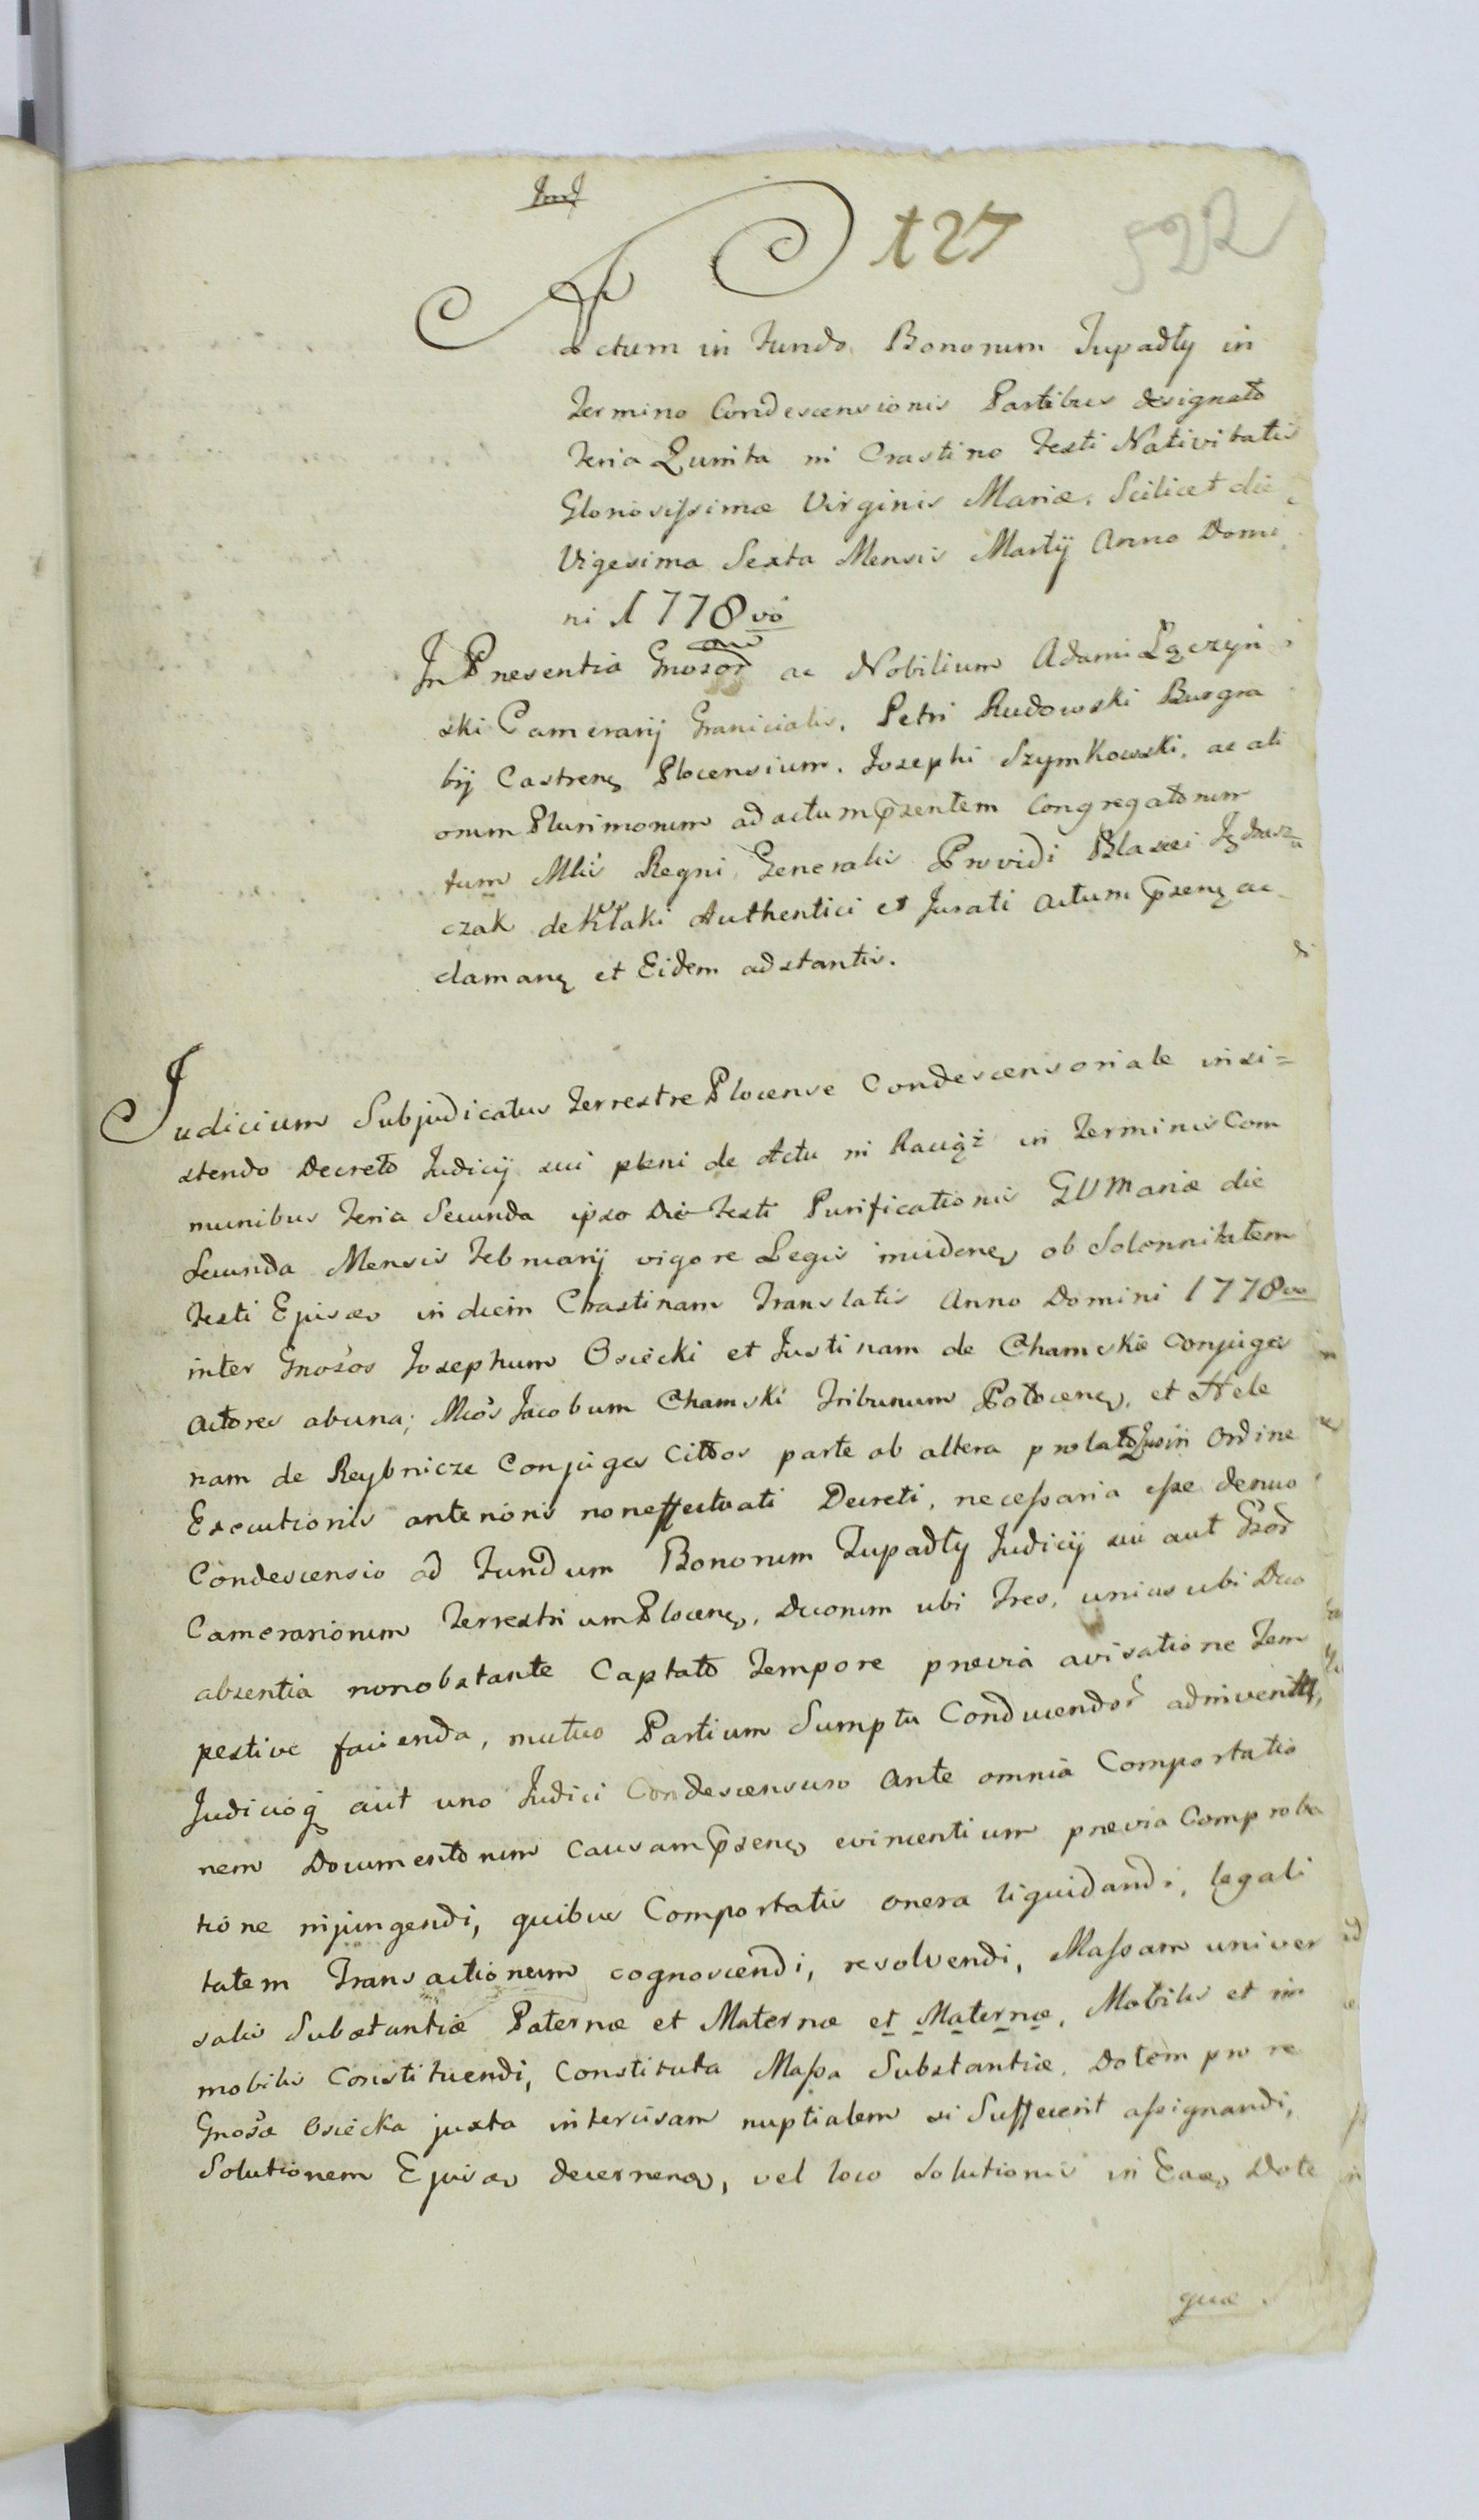 127
522
Actum in Fundo Bonorum Tupadły in
Termino Condescensionis Partibus designato
Feria Quinta in Crastino Festi Nativitatis
Gloriosissimæ Virginis Mariæ, Scilicet die
Vigesima Sexta Mensis Martij Anno Domi
ni 1778vo
In Presentia Gnosor ac Nobilium Adami Łączyń
ski Camerarij Granicialis, Petri Rudowski Burgra
bij Castren Plocensium, Josephi Szymkowski, ac ali
orum Plurimorum ad actum pzentem Congregatorum
tum Mlis Regni Generalis Providi Blasei Jędrasz=
czak de Kłaki Authentici et Jurati Actum pzens ac
claman et Eidem adstantis.
Judicium Subjudicatus Terrestre Plocense Condescensoriale insi=
stendo Decreto Judicij sui pleni de Actu in Raciąż in Terminis Com
munibus Feria Secunda ipso Die Festi Purificationis GVMariæ die
Secunda Mensis Februarij vigore Legis inciden ob Solennitatem
Festi Ejusdem in diem Crastinam Translatis Anno Domini 1778vo
inter Gnosos Josephum Osiecki et Justinam de Chamskie Conjuges
Actores ab una; Mcos Jacobum Chamski Tribunum Plocen, et Hele
nam de Reybnicze Conjuges Cittos parte ab altera prolato Quo in Ordine
Executionis anterioris non effectuati Decreti, necessaria esse denuo
Condescensio ad Fundum Bonorum Tupadły Judicij sui aut Gsor
Camerariorum Terrestrium Plocen, Duorum ubi Tres, unius ubi Duo
absentia nonobstante Captato Tempore prævia avisatione Tem
pestive facienda, mutuo Partium Sumptu Conducendor adinvenitt,
Judicioq aut uno Judici Condescensuro Ante omnia Comportatio
nem Documentorum Causam pzens evincentium prævia Comproba
tione injungendi, quibus Comportatis onera liquidandi, legali
tatem Transactionum cognoscendi, resolvendi, Massam univer
salis Substantiæ Paternæ et Maternæ et Maternæ, Mobilis et im
mobilis Constituendi, Constituta Massa Substantiæ, Dotem pro re
Gnosa Osiecka juxta intercisam nuptialem si Suffecerit assignandi,
Solutionem Ejusdem decernen, vel loco Solutionis in Eadem Dote
quæ